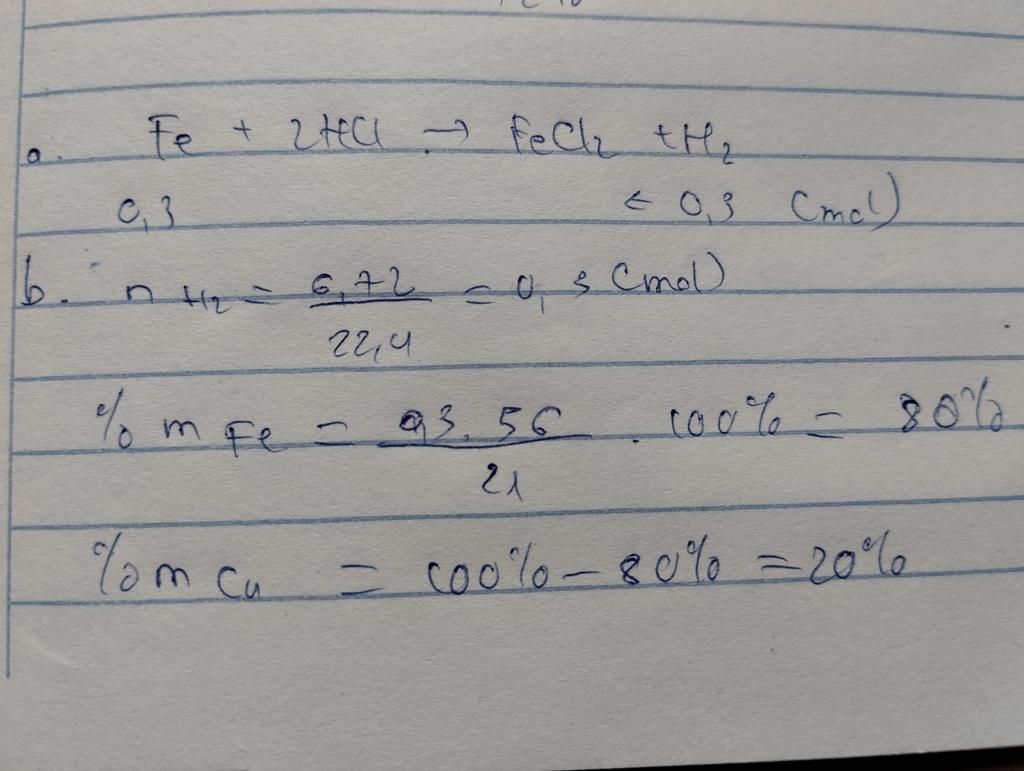 a. Fe + 2HCl → FeCl₂ + H₂
0,3 ← 0,3 (mol)
b. n H₂ = 6,72 / 22,4 = 0,3 (mol)
% m Fe = 0,3.56 / 21 . 100% = 80%
% m Cu = 100% - 80% = 20%